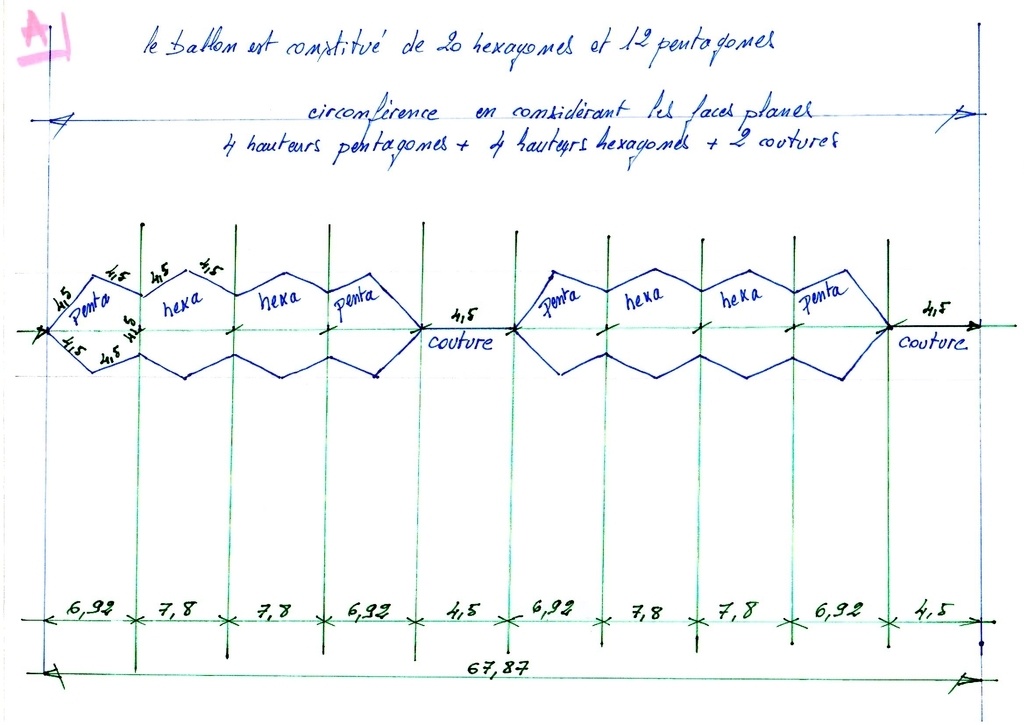 A
le ballon est constitué de 20 hexagones et 12 pentagones
circonférence en considérant les faces planes
4 hauteurs pentagones + 4 hauteurs hexagones + 2 coutures
4,5 4,5 4,5 4,5
penta hexa hexa penta penta hexa hexa penta
4,5 4,5 4,5
4,5 4,5
couture couture
6,92 7,8 7,8 6,92 4,5 6,92 7,8 7,8 6,92 4,5
67,87